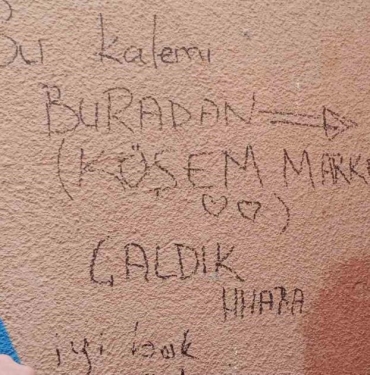 Bu kalemi
BURADAN
(KÖŞEM MARK
)
ÇALDIK
iyi bak